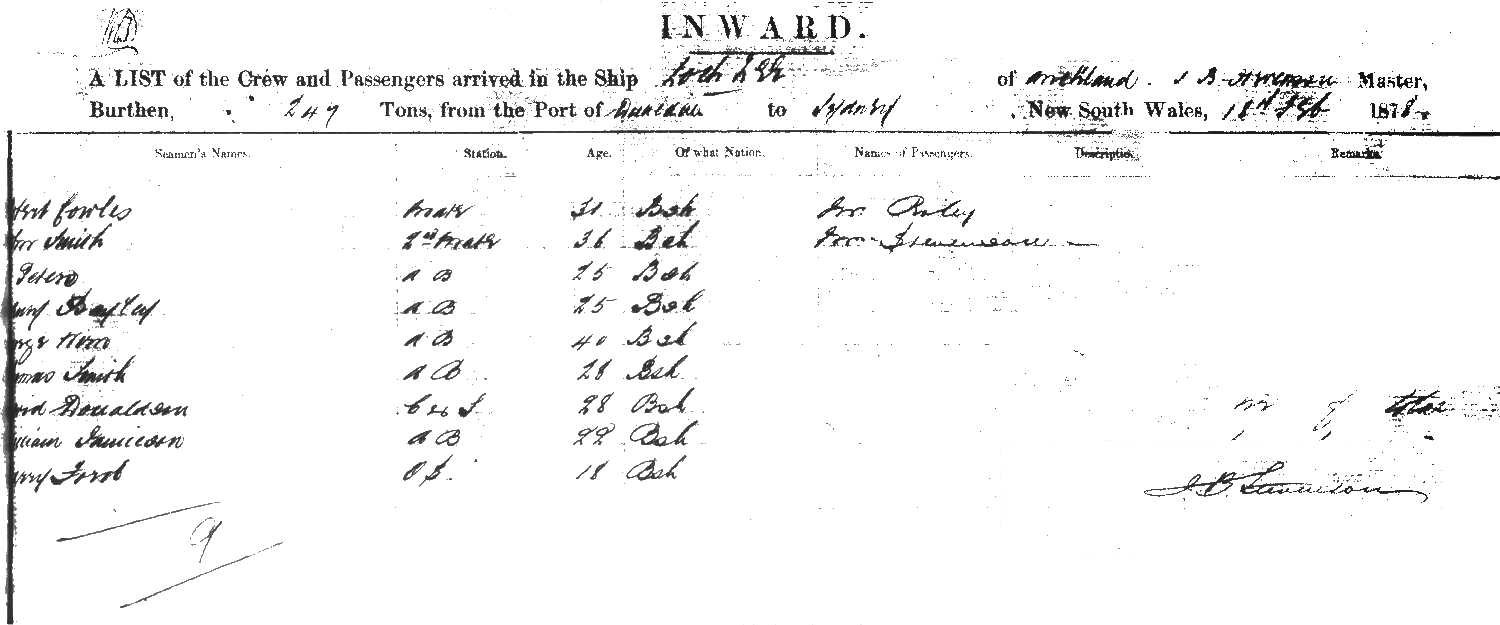 INWARD.
A LIST of the Crew and Passengers arrived in the Ship Loch Lee of Auckland. J B Stevenson Master,
Burthen, 249 Tons, from the Port of to Sydney New South Wales, 18th Feb 1878
Seamen's Names. Station. Age. Of what Nation. Names of Passengers. Description Remarks
Cowles Mate 31 Bsh Mr
Smith 2nd Mate 36 Bsh Mrs Stevenson
Peters A B 25 Bsh
Bayley A B 25 Bsh
A B 40 Bsh
Smith A B 28 Bsh
Donaldson 28 Bsh
Jamieson A B 22 Bsh
O S. 18 Bsh
J. B. Stevenson
9